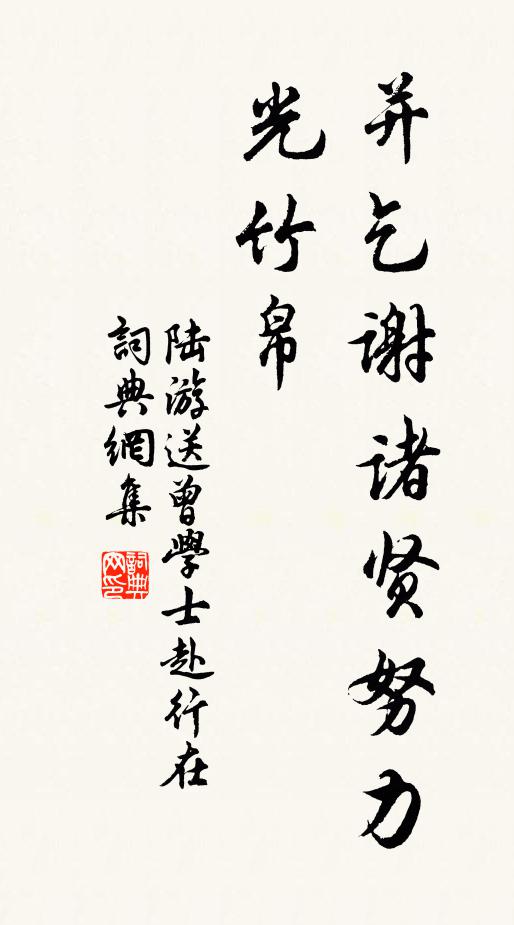 并乞谢诸贤努力
光竹帛
陆游送曾學士赴行在
詞典網集
詞典網印